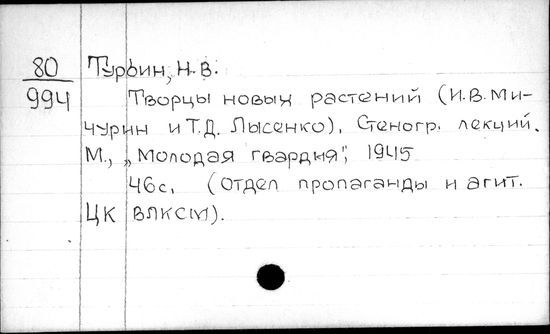 80
994
Турбин, Н.В.
Творцы новых растений (И.В.Ми-
чурин и Т.Д. Лысенко). Стеногр. лекций.
М., „Молодая гвардия", 1945
46с. (Отдел пропаганды и агит.
ЦК ВЛКСМ).